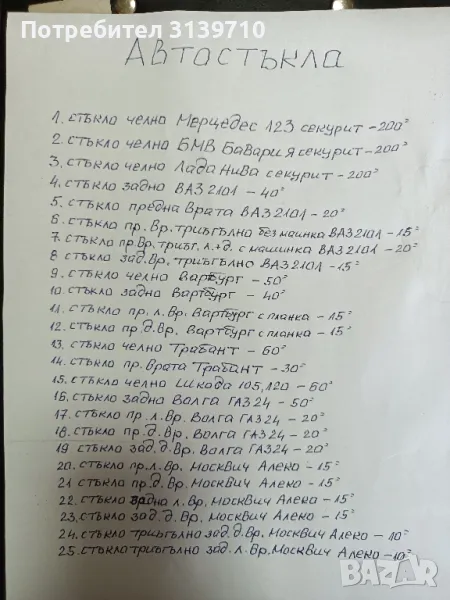 Потребител 3139710
Автостъкла
1. стъкло челно Мерцедес 123 секурит - 200лв
2. стъкло челно БМВ Бавария секурит - 200лв
3. стъкло челно Лада Нива секурит - 200лв
4. стъкло задно ВАЗ 2101 - 40лв
5. стъкло предна врата ВАЗ 2101 - 20лв
6. стъкло пр. вр. триъгълно без машинка ВАЗ 2101 - 15лв
7. стъкло пр. вр. триъг. л.+д. с машинка ВАЗ 2101 - 20лв
8 стъкло зад. вр. триъгълно ВАЗ 2101 - 15лв
9. стъкло челно Вартбург - 50лв
10. стъкло задно Вартбург - 40лв
11. стъкло пр. л. вр. Вартбург с планка - 15лв
12. стъкло пр. д. вр. Вартбург с планка - 15лв
13. стъкло челно Трабант - 60лв
14. стъкло пр. врата Трабант - 30лв
15. стъкло челно Шкода 105, 120 - 60лв
16. стъкло задно Волга ГАЗ 24 - 50лв
17. стъкло пр. л. вр. Волга ГАЗ 24 - 20лв
18. стъкло пр. д. вр. Волга ГАЗ 24 - 20лв
19 стъкло зад. д. вр. Волга ГАЗ 24 - 20лв
20. стъкло пр. л. вр. Москвич Алеко - 15лв
21 стъкло пр. д. вр. Москвич Алеко - 15лв
22. стъкло задна л. вр. Москвич Алеко - 15лв
23. стъкло зад. д. вр. Москвич Алеко - 15лв
24. стъкло триъгълно зад. д. вр. Москвич Алеко - 10лв
25. стъкло триъгълно зад. л. вр. Москвич Алеко - 10лв
bazar